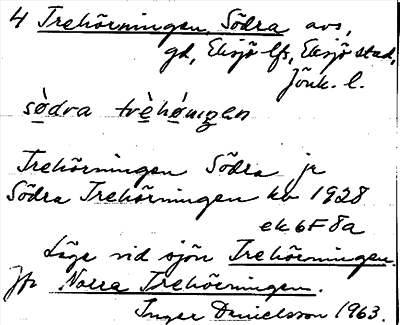 4 Trehörningen, Södra avs,
gd, Eksjö lfs, Eksjö stad,
Jönk. l.
sö̀dra trèhö̀rningen
Trehörningen Södra jr
Södra Trehörningen kb 1928
ek 6F 8a
Läge vid sjön Trehörningen.
Jfr Norra Trehörningen.
Inger Danielsson 1963.